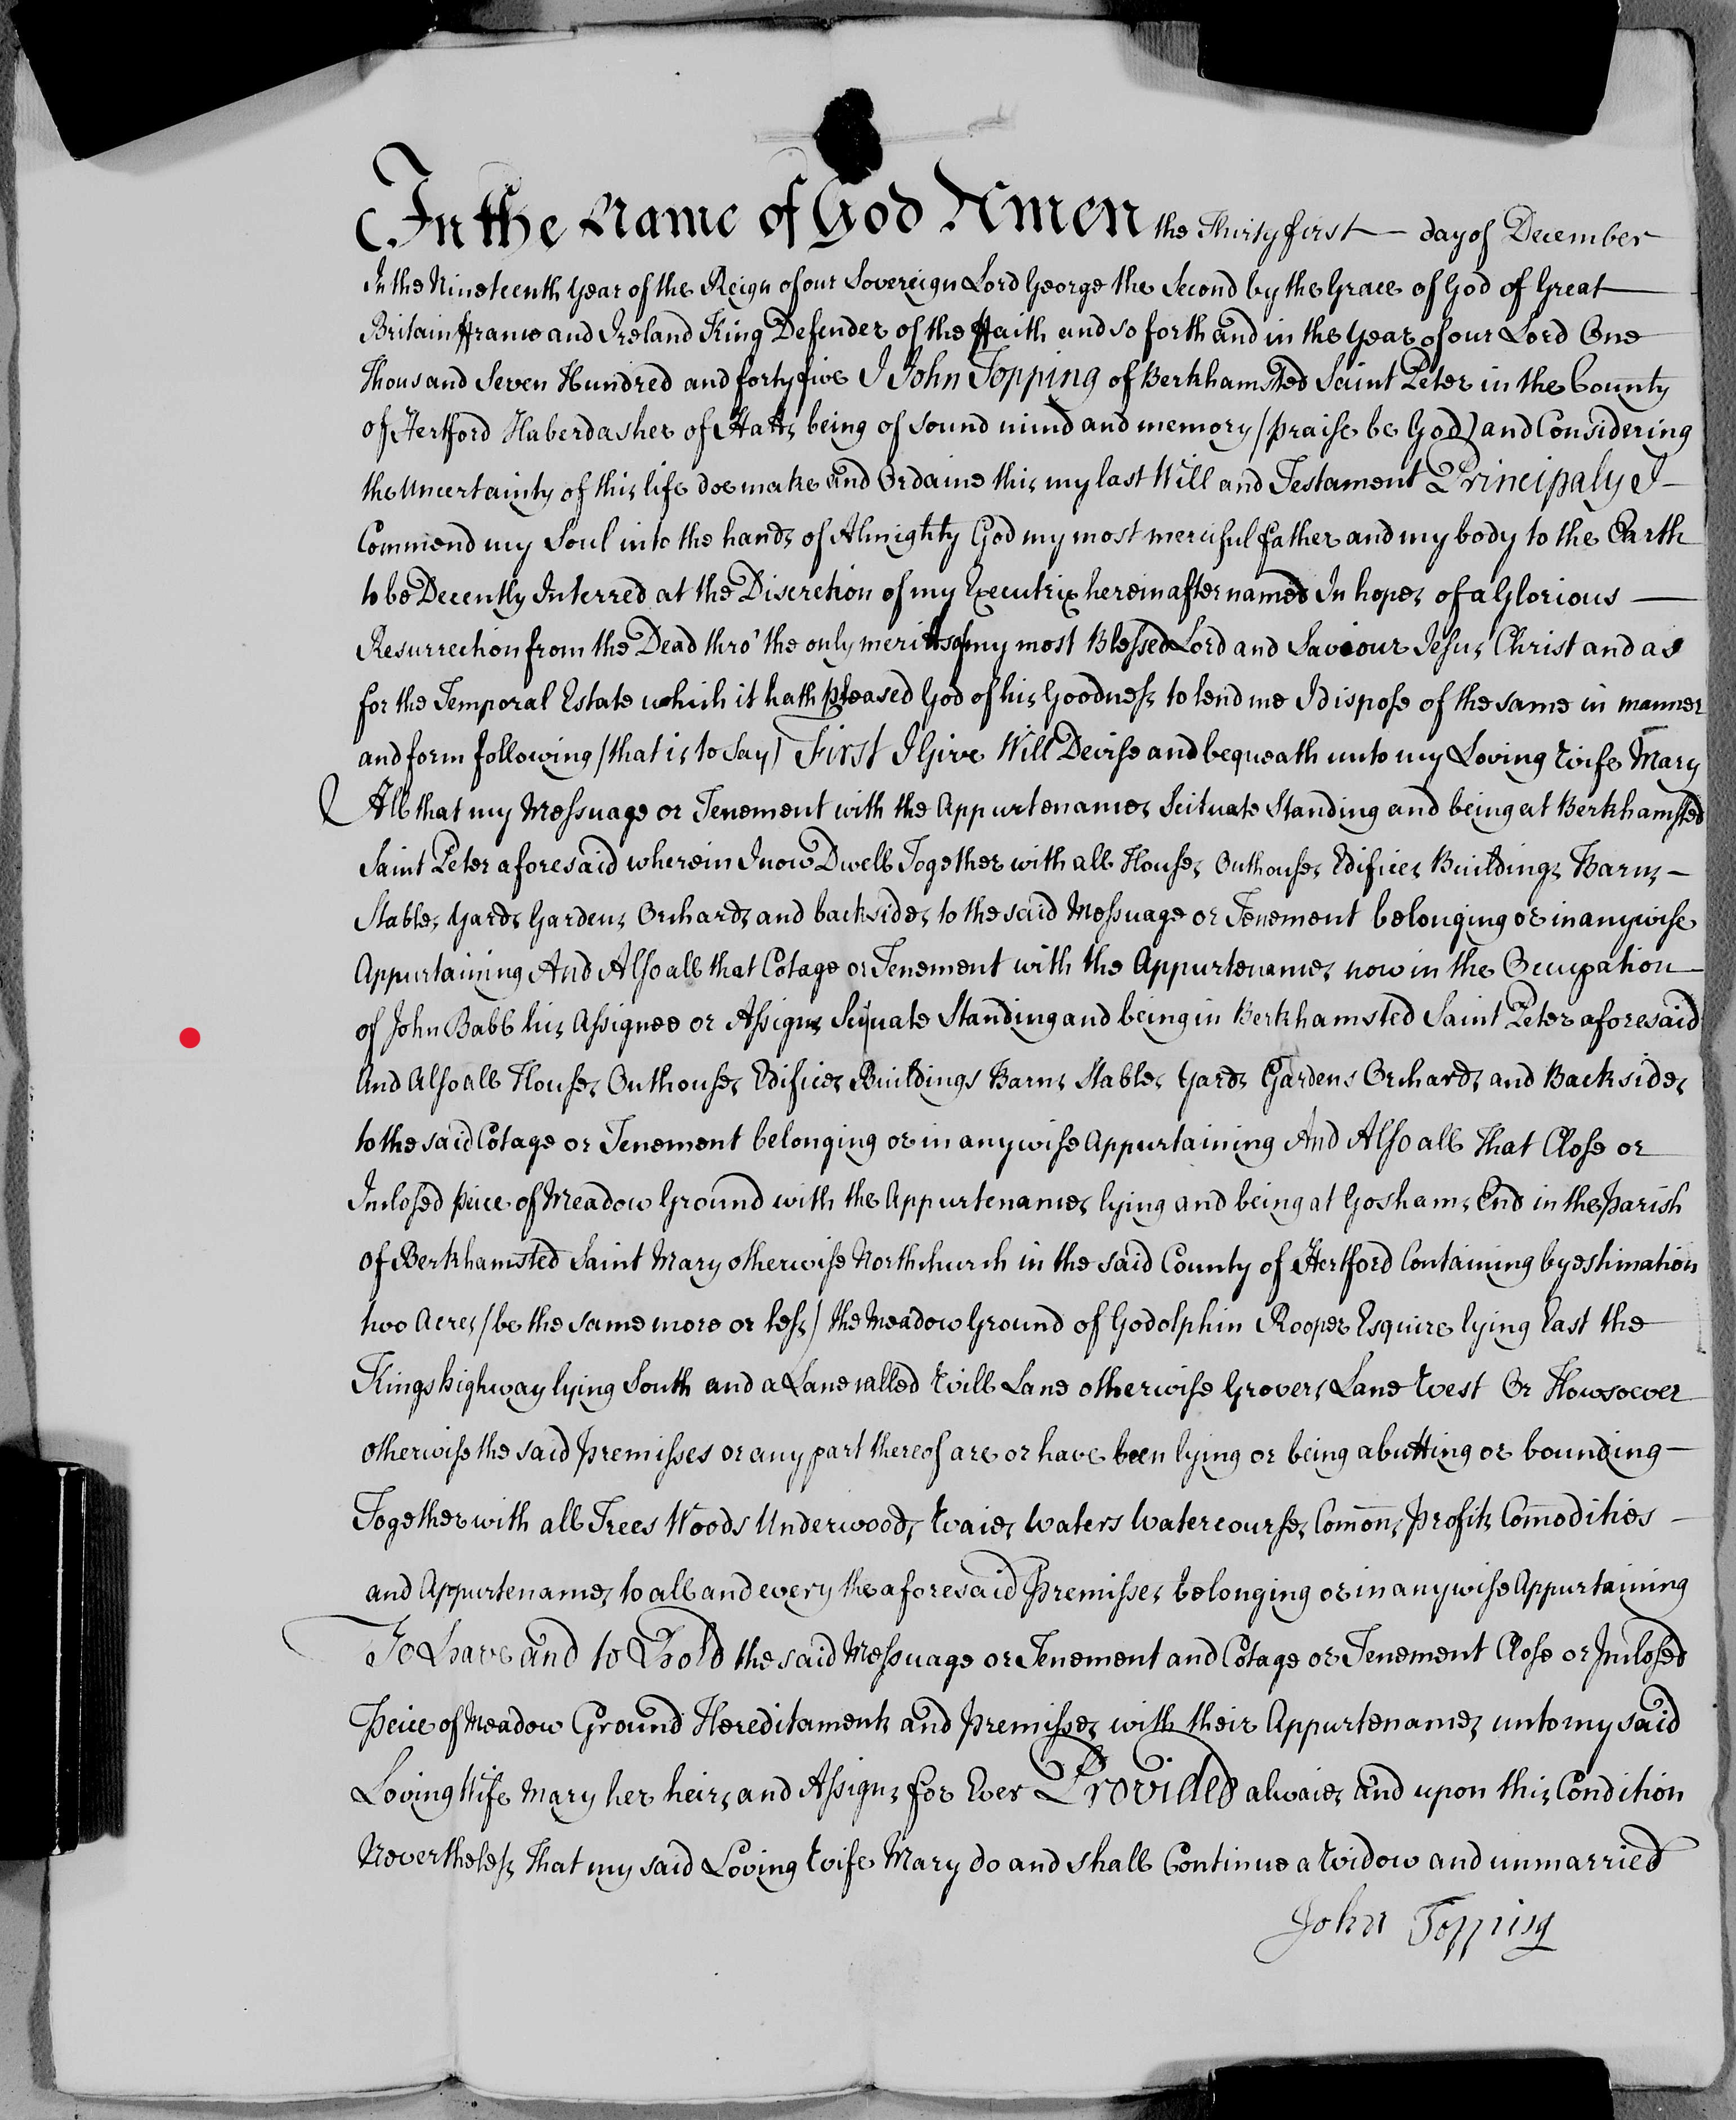 In the Name of God Amen the Thirty first — day of December
In the Nineteenth Year of the Reign of our Sovereign Lord George the Second by the Grace of God of Great
Britain ffrance and Ireland King Defender of the ffaith and so forth and in the Year of our Lord One
Thousand Seven Hundred and forty five I John Topping of Berkhamsted Saint Peter in the County
of Hertford Haberdasher of Hatts being of sound mind and memory (praise be God) and Considering
the Uncertainty of this life doe make and Ordaine this my last Will and Testament Principaly I
Commend my Soul into the hands of Almighty God my most merciful father and my body to the Earth
to be Decently Interred at the Discretion of my Executrix hereinafter named In hopes of a Glorious —
Resurrection from the Dead thro' the only meritts of my most Blessed Lord and Saviour Jesus Christ and as
for the Temporal Estate which it hath pleased God of his Goodness to lend me I dispose of the same in manner
and form following (that is to Say) First I Give Will Devise and bequeath unto my Loving Wife Mary
All that my Messuage or Tenement with the Appurtenances Scituate Standing and being at Berkhamsted
Saint Peter aforesaid wherein I now Dwell Together with all Houses Outhouses Edifices Buildings Barns —
Stables Yards Gardens Orchards and backsides to the said Messuage or Tenement belonging or in any wise
Appurtaining And Also all that Cotage or Tenement with the Appurtenances now in the Occupation
of John Babb his Assignee or Assigns Scituate Standing and being in Berkhamsted Saint Peter aforesaid
And Also all Houses Outhouses Edifices Buildings Barns Stables Yards Gardens Orchards and Backsides
to the said Cotage or Tenement belonging or in any wise Appurtaining And Also all that Close or
Inclosed peice of Meadow Ground with the Appurtenances lying and being at Goshams End in the Parish
of Berkhamsted Saint Mary otherwise Northchurch in the said County of Hertford Containing by estimation
two Acres (be the same more or less) the Meadow Ground of Godolphin Rooper Esquire lying East the
Kings highway lying South and a Lane called Will Lane otherwise Grovers Lane West Or Howsoever
otherwise the said premisses or any part thereof are or have been lying or being abutting or bounding —
Together with all Trees Woods Underwoods Waies Waters Watercourses Comons Profits Comodities —
and Appurtenances to all and every the aforesaid Premisses belonging or in any wise Appurtaining
To Have and to Hold the said Messuage or Tenement and Cotage or Tenement Close or Inclosed
Peice of Meadow Ground Hereditaments and premisses with their Appurtenances unto my said
Loving Wife Mary her heirs and Assigns for Ever Provided alwaies and upon this Condition
Nevertheless That my said Loving Wife Mary do and shall Continue a Widow and unmarried
John Topping